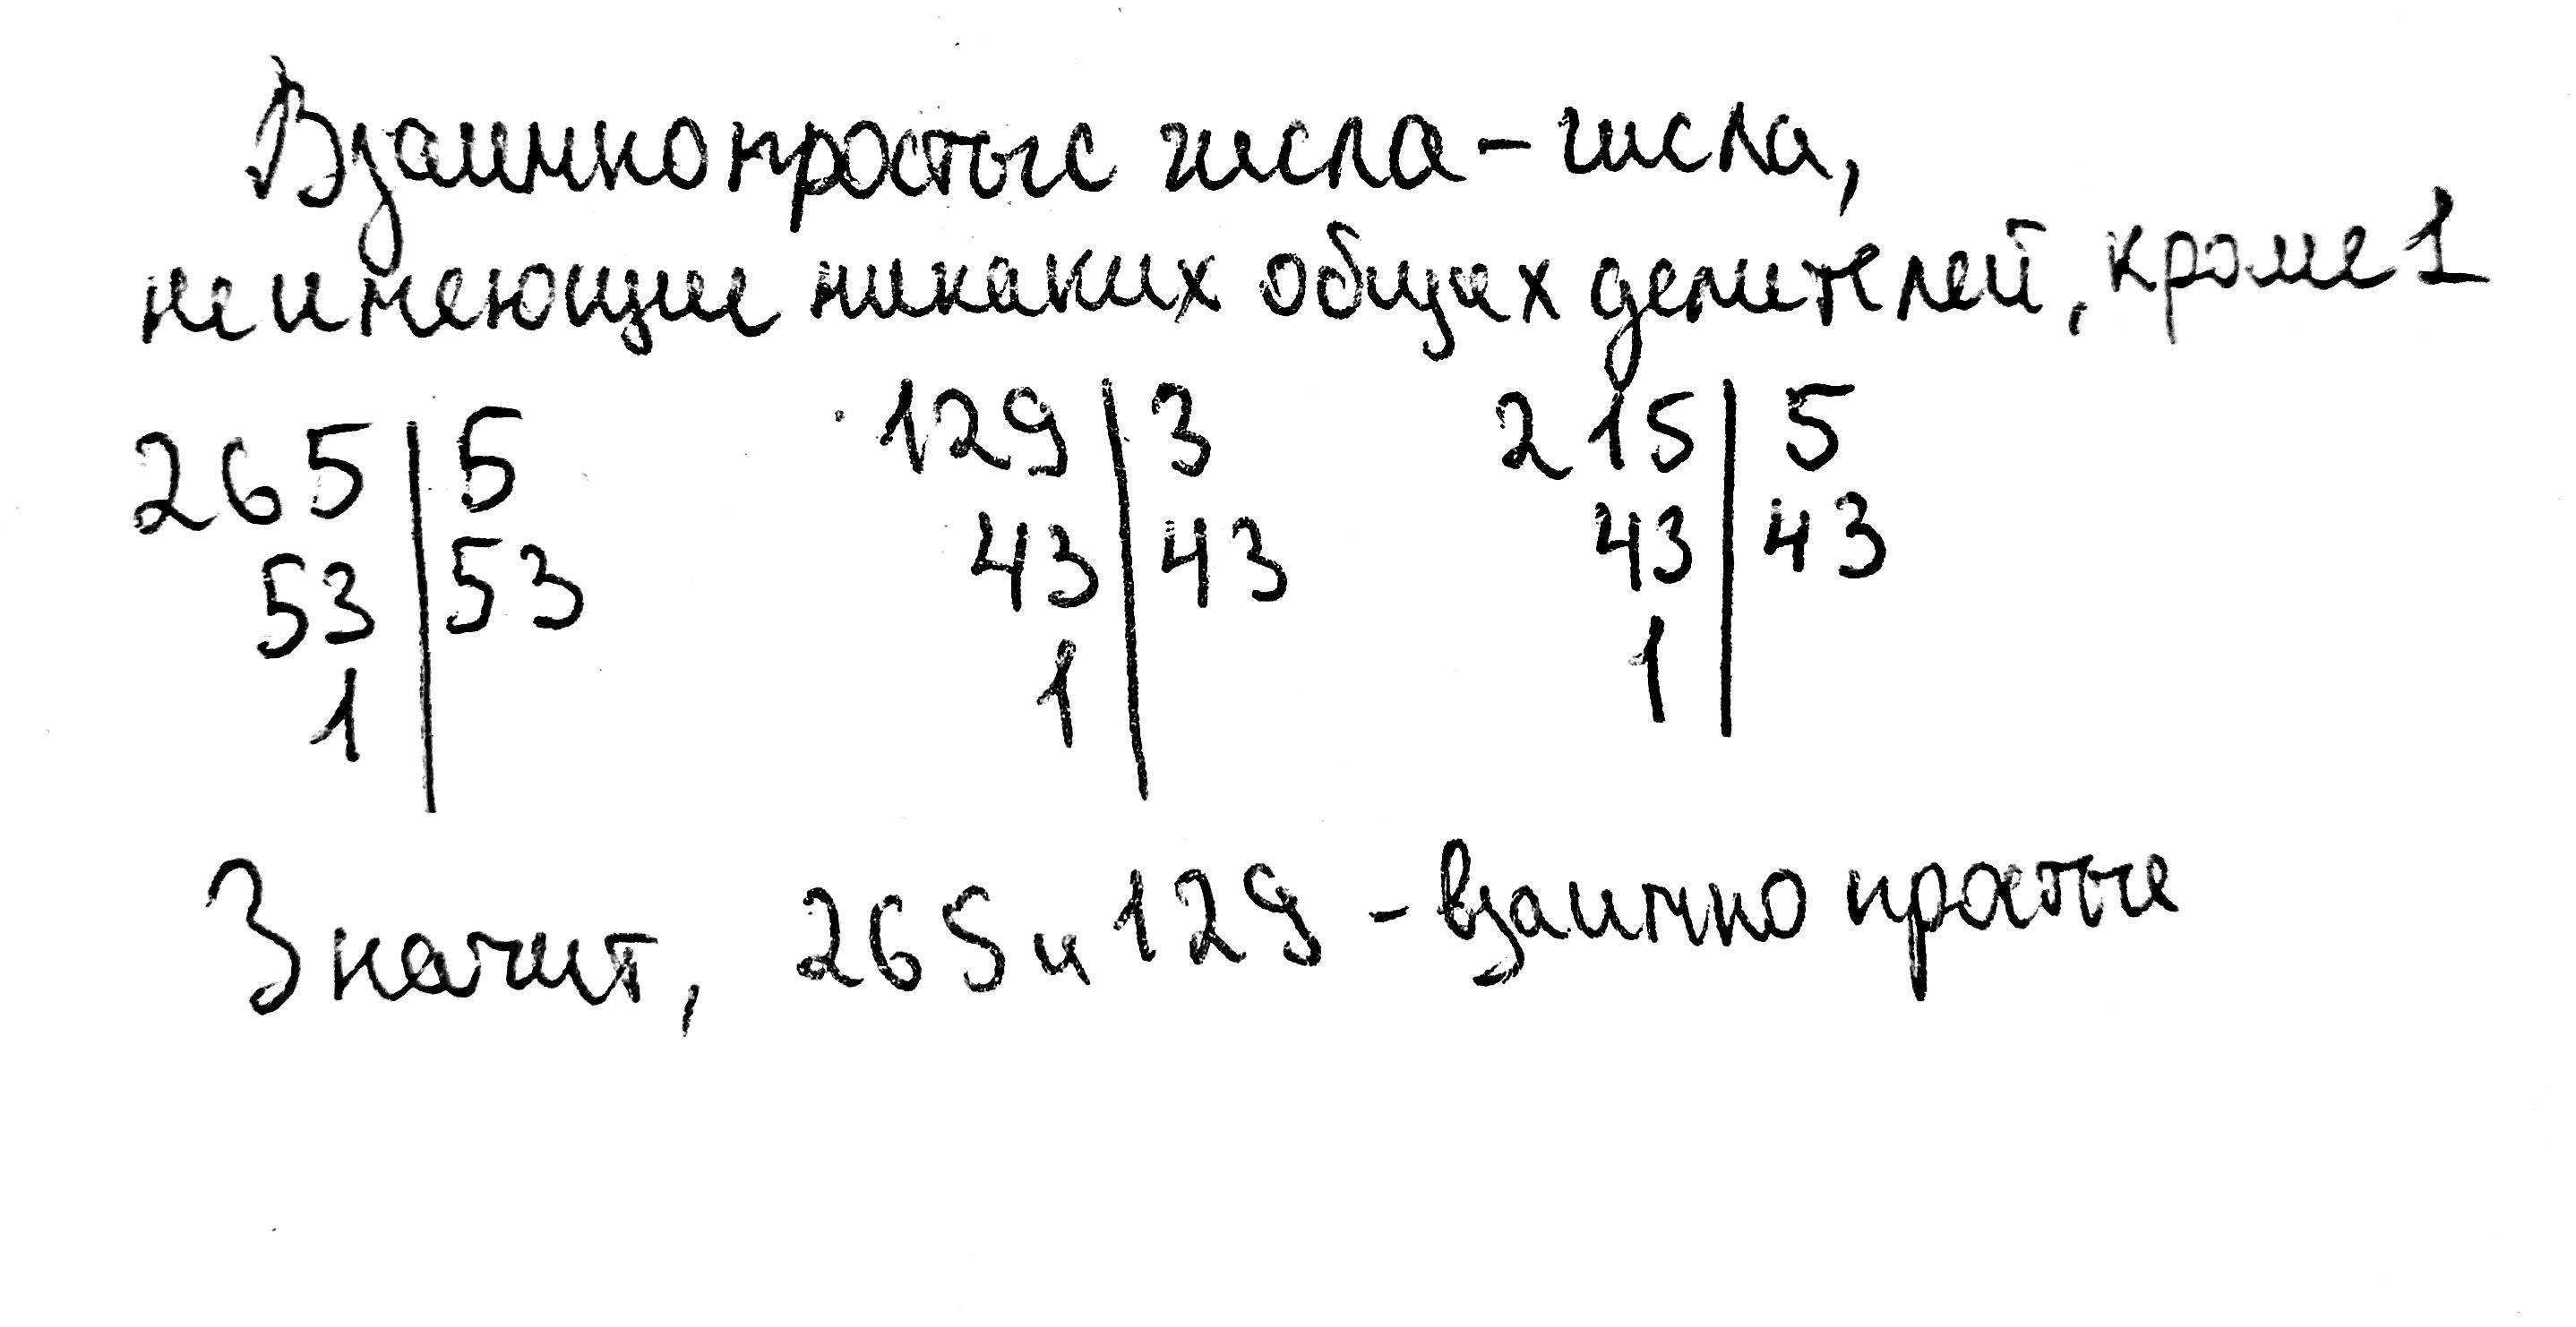 Взаимно простые числа – числа,
не имеющие никаких общих делителей, кроме 1
265 | 5 129 | 3 215 | 5
53 | 53 43 | 43 43 | 43
1 | 1 | 1 |
Значит, 265 и 129 – взаимно простые